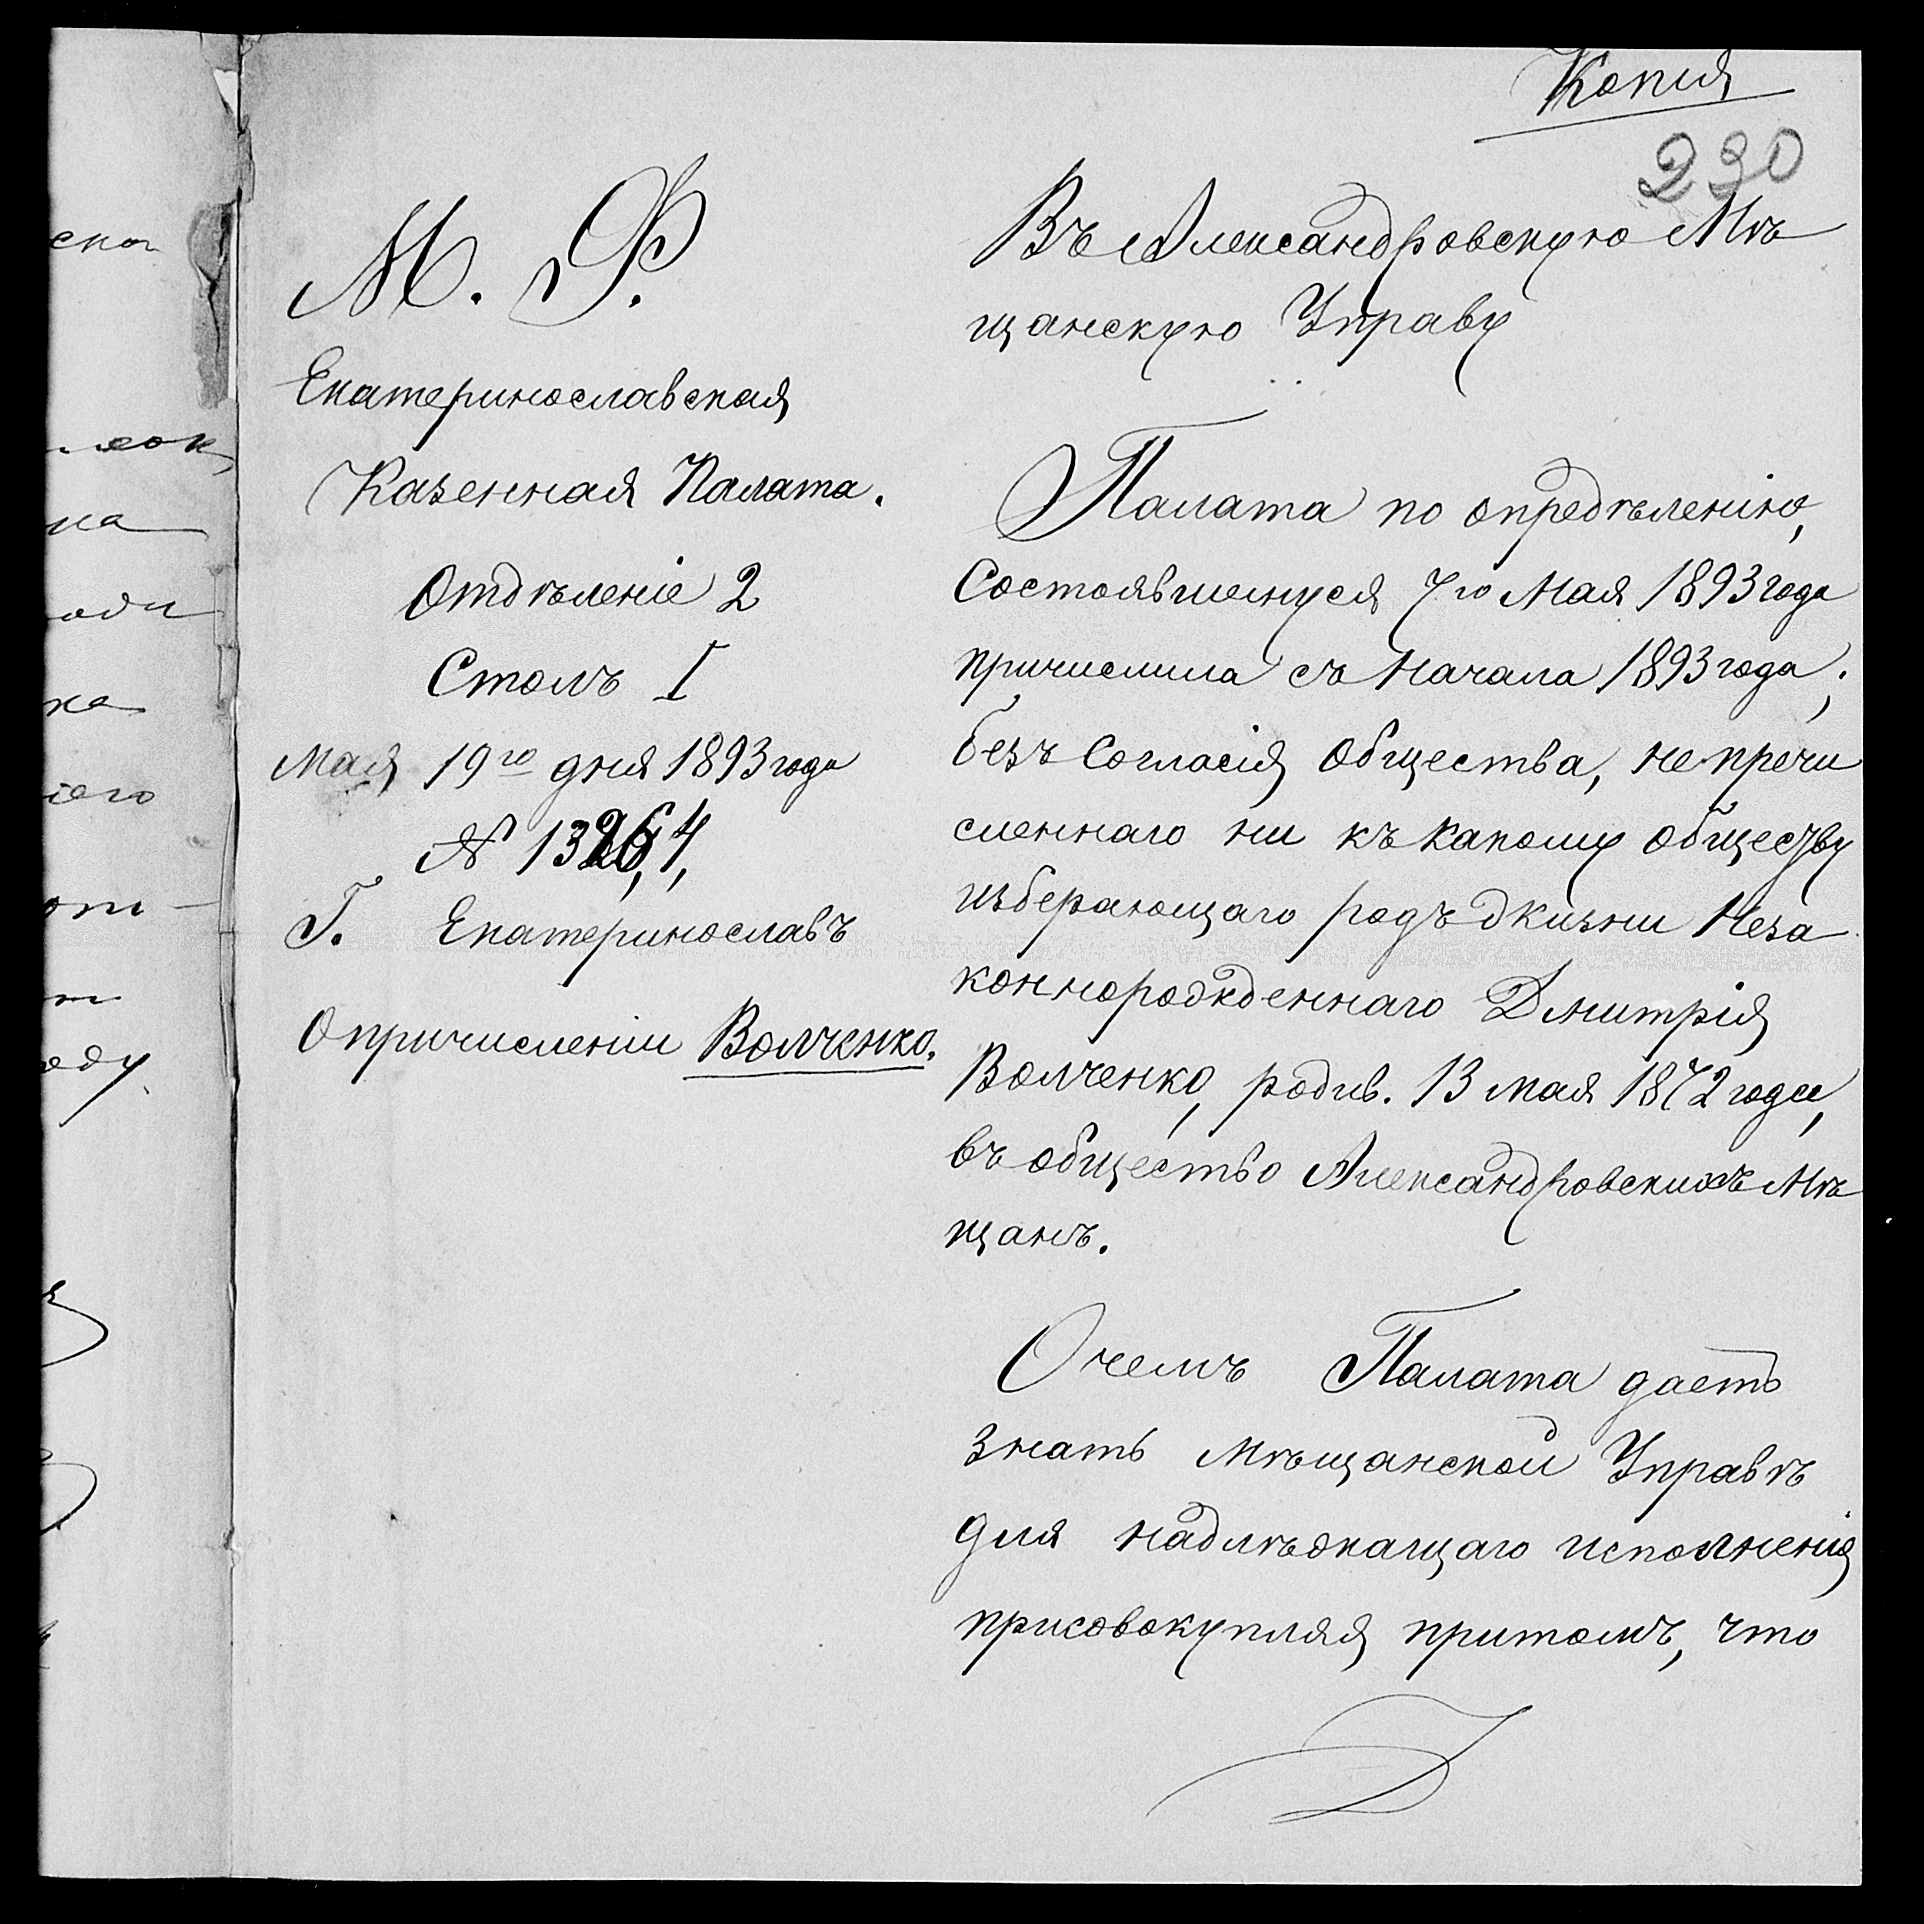 Копія
230
М. Ф.
Екатеринославская
Казенная Палата.
Отдѣленіе 2
Столъ I
Мая 19го дня 1893 года
№ 13264,
Г. Екатеринославъ
О причисленіи Волченко.
Въ Александровскую Мѣ
щанскую Управу
Палата по опредѣленію,
состоявшемуся 7го Мая 1893 года
причислила съ начала 1893 года,
безъ согласія общества, не причи
сленнаго ни къ какому обществу
изберающаго родъ жизни Неза
коннорожденнаго Дмитрія
Волченко, родив. 13 мая 1872 года,
въ общество Александровскихъ Мѣ
щанъ.
О чемъ Палата даетъ
знать Мѣщанской Управѣ
для надлѣжащаго исполненія
присовокупляя притомъ, что